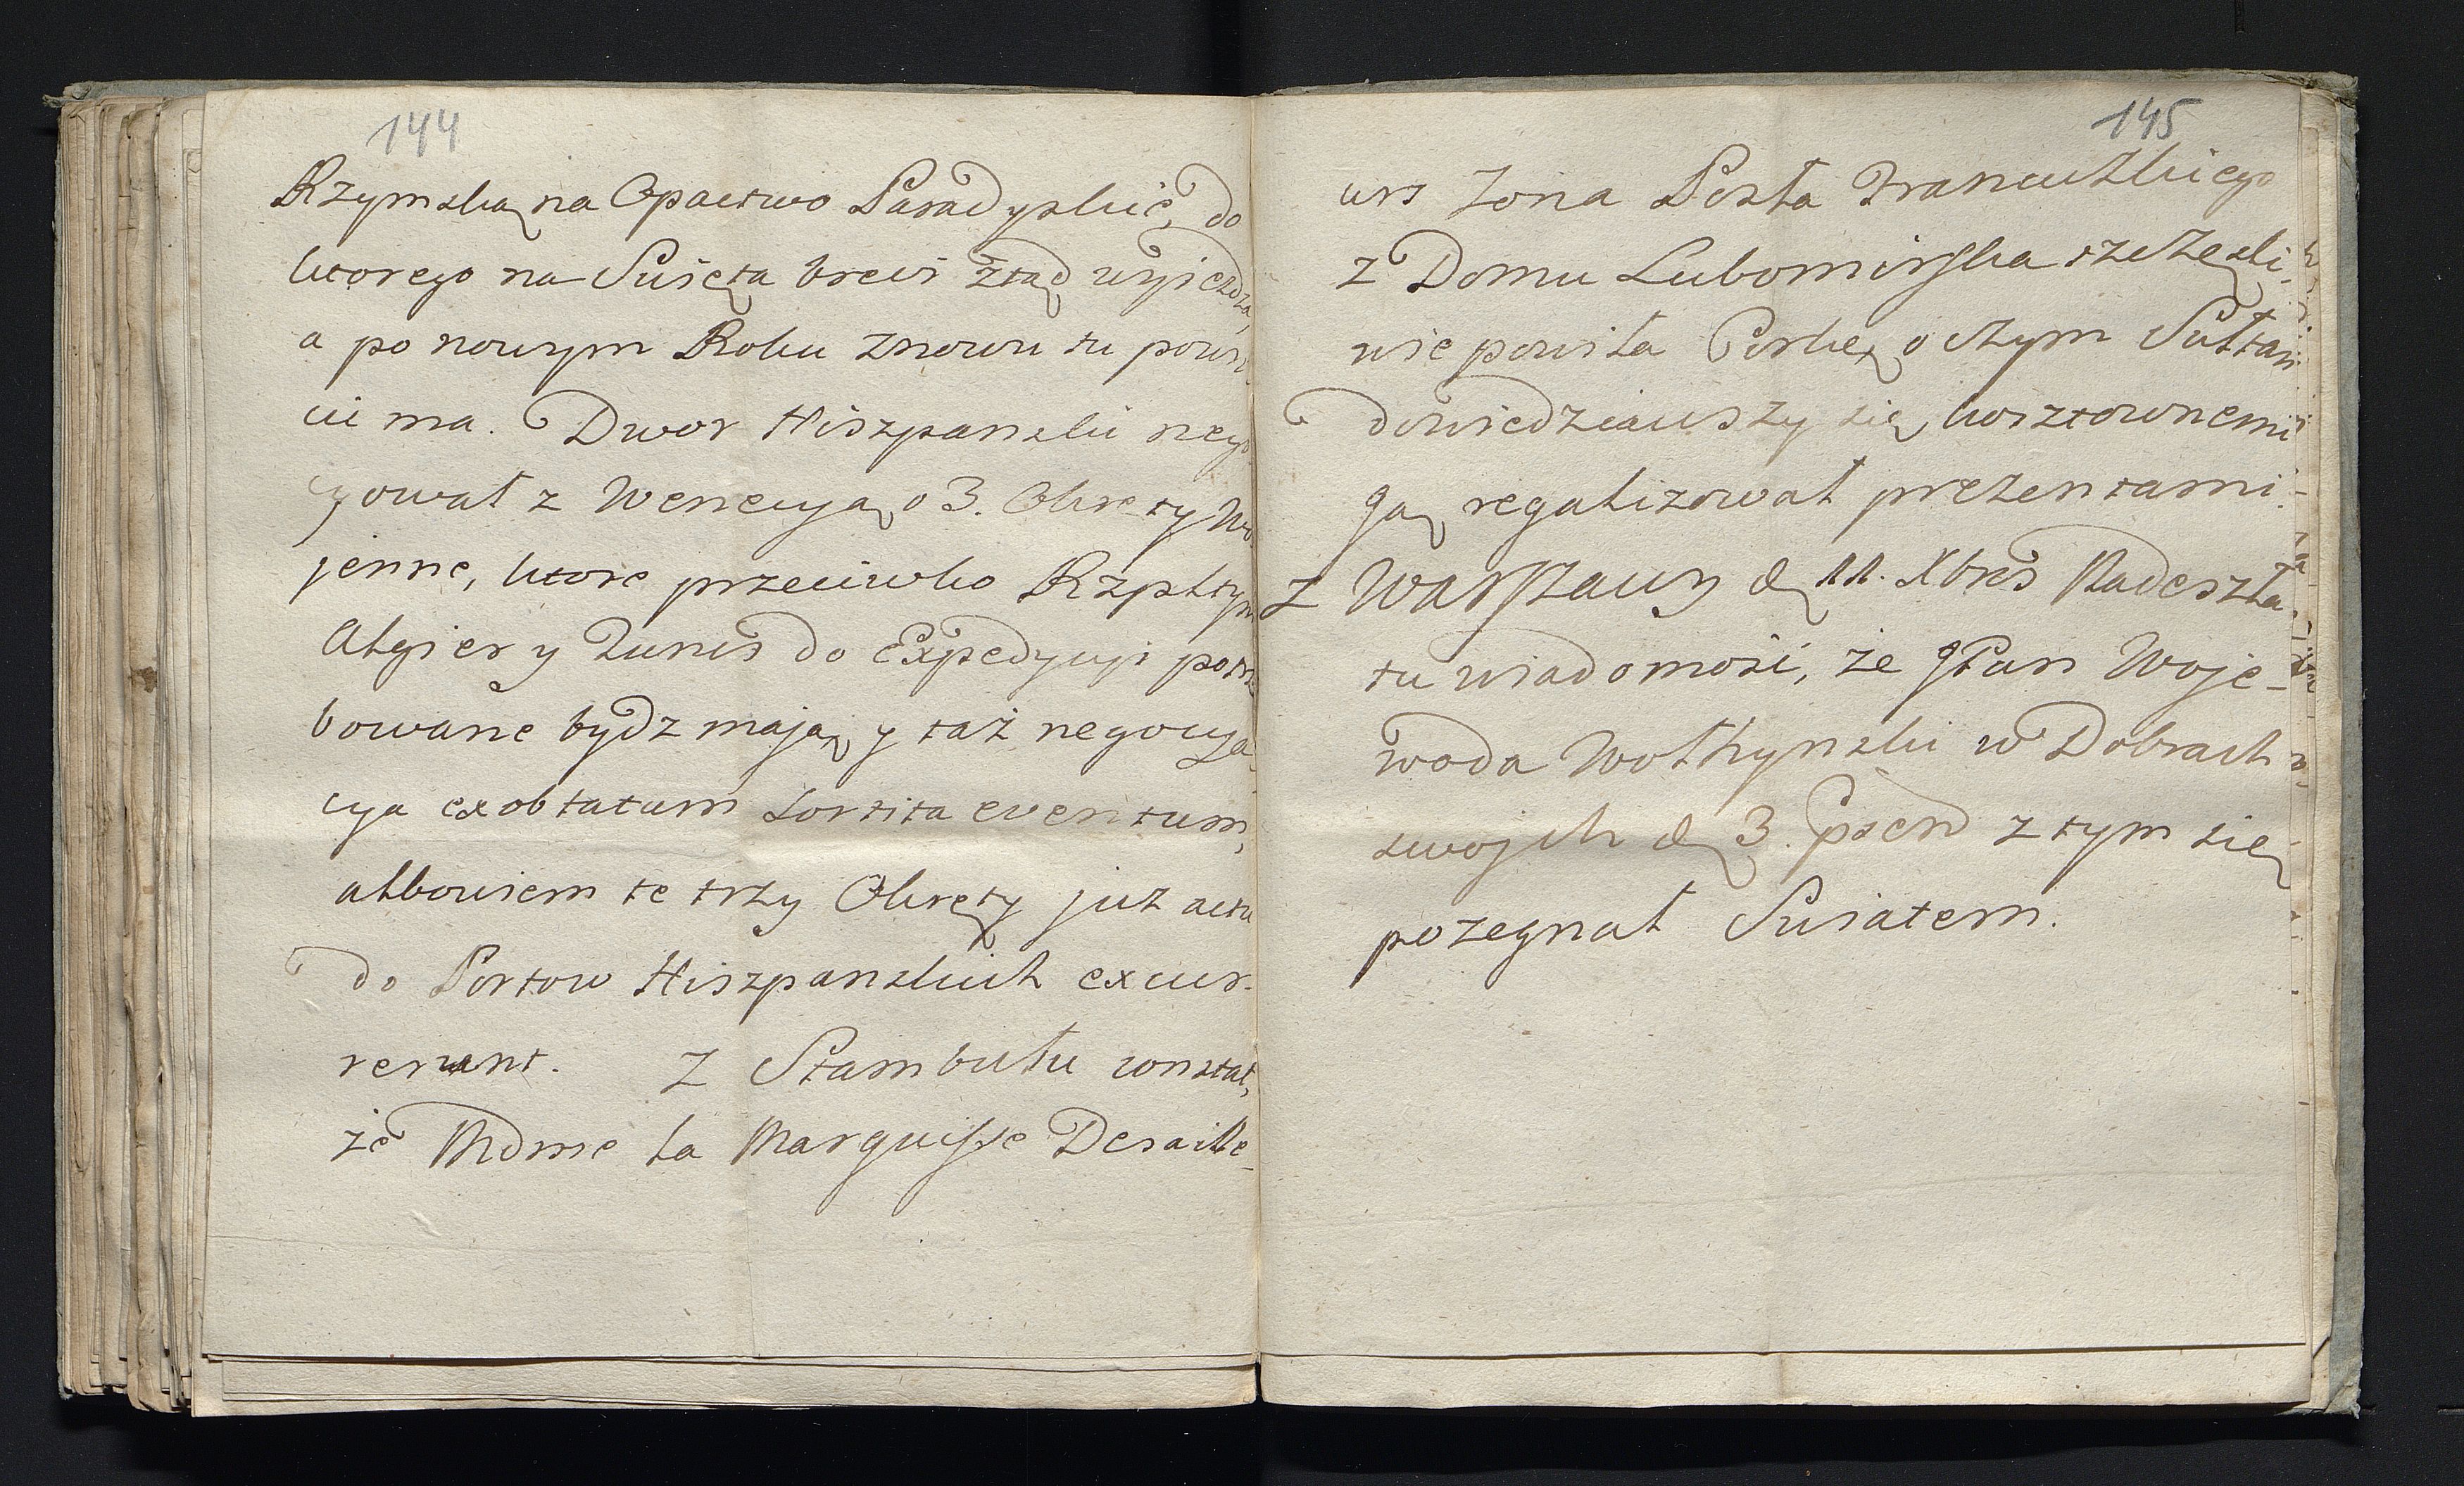 144
Rzymską na Opactwo Paradyskie, do
ktorego na Swięta brevi ztąd wyjezdza,
a po nowym Roku znowu tu powro
cic ma. Dwor Hiszpanski nego
cyował z Wenecyą o 3. Okręty Wo
jenne, ktore przeciwko Rzpltym
Algier y Tunis do Expedycyi potrze
bowane bydz mają, y taż negocya
cya exobtatum sortita eventum,
albowiem te trzy Okręty już actu
do Portow Hiszpanskich excur-
rerunt. Z Stambułu constat,
że Mdme la Marquisse Desaille-
145
urs Zona Posła Francuzkiego
z Domu Lubomirska szczęsli-
wie powiła Corkę, o czym Sułtan
dowiedziawszy się, kosztownemi
Ją regalizował prezentami.
Z Warszawy d. 11. Xbris Nadeszła
tu wiadomość, że JPan Woje-
woda Wołhynski w Dobrach
swojch d. 3. praes z tym się
pozegnał Swiatem.